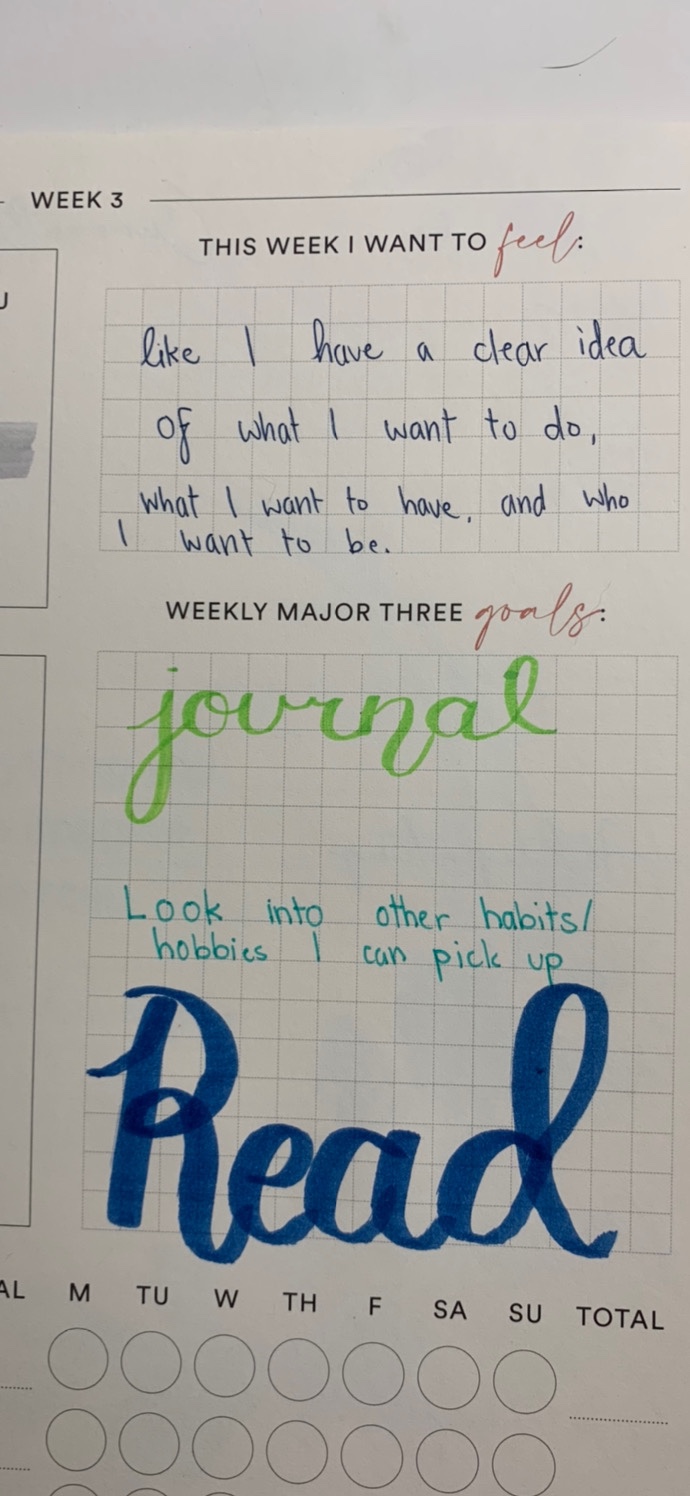 WEEK 3
THIS WEEK I WANT TO feel:
like I have a clear idea
of what I want to do,
what I want to have, and who
I want to be.
WEEKLY MAJOR THREE goals:
journal
Look into other habits/
hobbies I can pick up
Read
AL M TU W TH F SA SU TOTAL